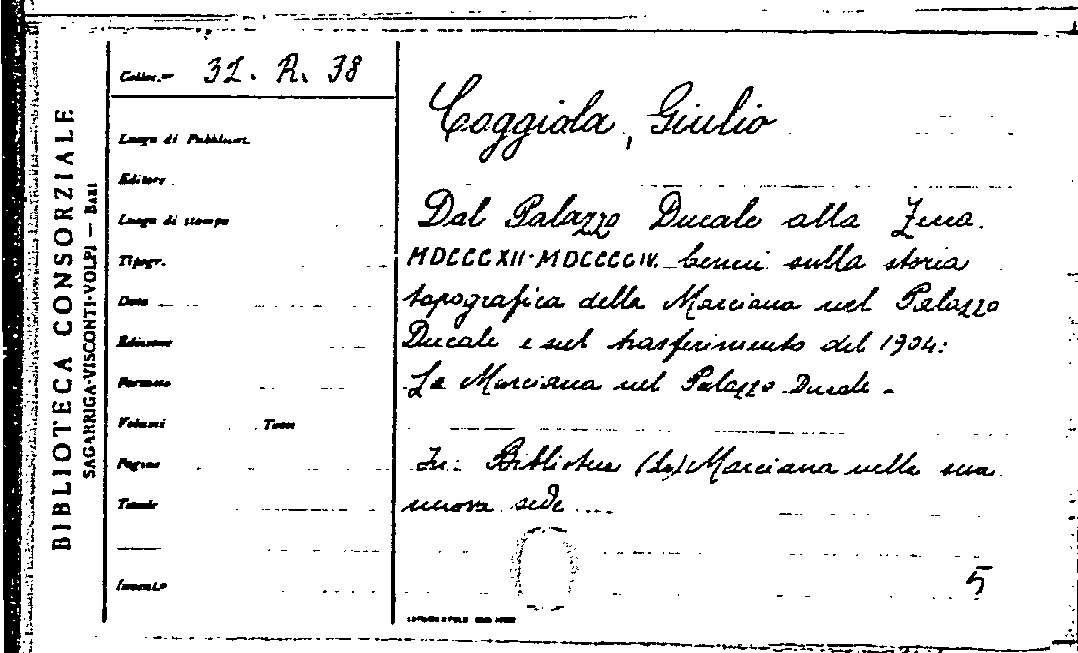 BIBLIOTECA CONSORZIALE
SAGARRIGA-VISCONTI-VOLPI — BARI
Colloc.ne 31. A. 38
Luogo di Pubblicaz.
Editore
Luogo di stampa
Tipogr.
Data
Edizione
Formato
Volumi Tomi
Pagine
Tavole
Invent.o
Coggiola, Giulio
Dal Palazzo Ducale alla Zecca.
MDCCCXII-MDCCCCIV. Cenni sulla storia
topografica della Marciana nel Palazzo
Ducale e sul trasferimento del 1904:
La Marciana nel Palazzo Ducale.
In: Biblioteca (La) Marciana nella sua
nuova sede ....
5